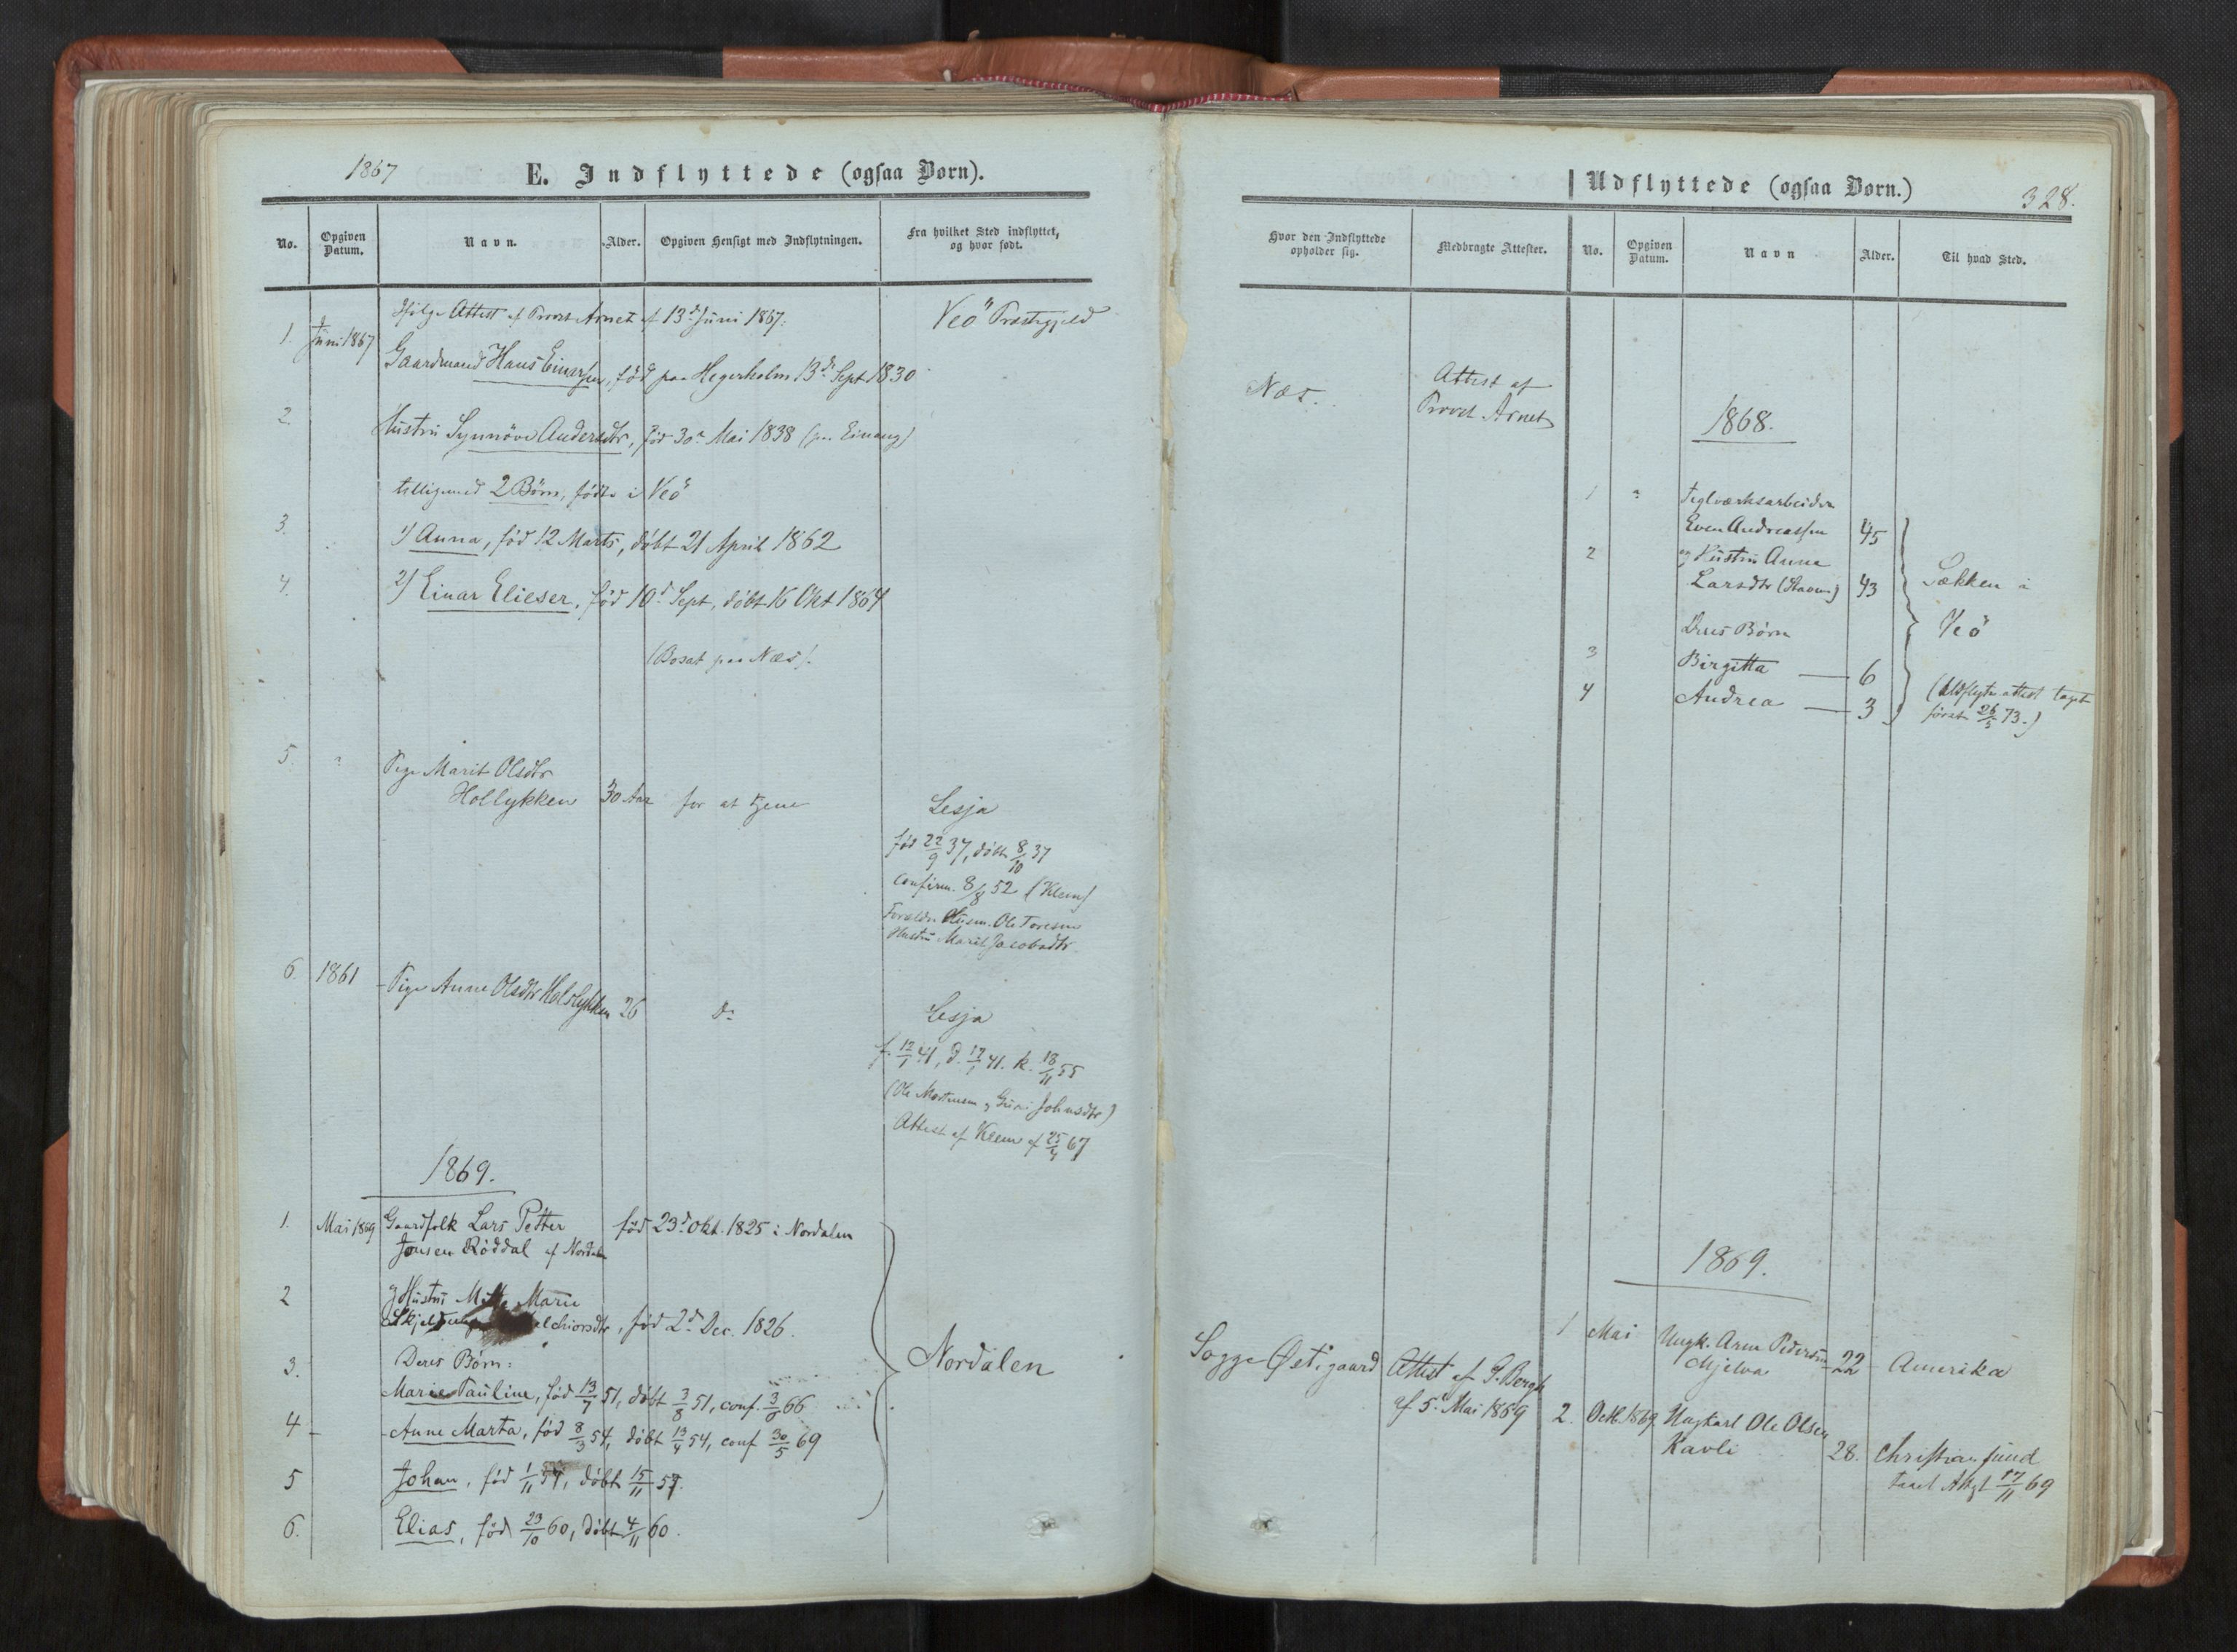 1867
E. Indflyttede (ogsaa Børn).
No.
Opgiven
Datum.
Navn.
Alder.
Opgiven Hensigt med Indflytningen.
Fra hvilket Sted indflyttet,
og hvor født.
Ifølge Attest af Provst Arnet af 13d Juni 1867.
Veö Præstegjeld
1. Juni 1867
Gaardmand Hans Einersen, född paa Hegerholm 13de Sept 1830
2.
Hustru Synnöve Andersdtr, föd 30te Mai 1838 (paa Einang)
tilligemed 2 Börn, födte i Veö
3.
1) Anna, föd 12 Marts, döbt 21 April 1862
4.
2) Einar Elieser, föd 10d Sept, döbt 16 Okt 1864
(Bosat paa Næs).
5.
Pige Marit Olsdtr
Hollykken 30 Aar for at tjene Lesja
föd 22/9 37, döbt 8/10 37
confirm. 8/8 52 (Klem)
Forældre Husm. Ole Toresen
Hustru Marit Jacobsdtr
6. 1861 Pige Anne Olsdtr Holslykken 26 do Lesja
f. 12/1 41, d. 17/1 41. k. 18/11 55
(Ole Mortensen og Guri Johnsdtr)
Attest af Klem af 25/4 67
1869.
1. Mai 1869 Gaardfolk Lars Petter föd 23d Okt. 1825 i Nordalen
Jonsen Röddal af Nordalen
2 og Hustru Marie
, föd 2d Dec. 1826.
Deres Börn:
Nordalen
3.
Marie Pauline, föd 13/7 51, döbt 3/8 51, conf. 3/6 66
4
Anne Marta, föd 8/3 54, döbt 13/4 54, conf 30/5 69
5
Johan, föd 1/11 57, döbt 15/11 57.
6.
Elias, föd 23/10 60, döbt 4/11 60.
Udflyttede (ogsaa Børn.)
328.
Hvor den Indflyttede
opholder sig.
Medbragte Attester.
No.
Opgiven
Datum.
Navn
Alder.
Til hvad Sted.
Næs.
Attest af
Provst Arnet
1868.
1
Teglværksarbeider
Even Andreassen 45
2 og Hustru Anna
Larsdtr 43
Sækken i
Veö
Deres Börn
3 Birgitta — 6
4 Andrea — 3
(Udflytn. attest taget
först 26/5 73.)
1869.
1 Mai Ungk. Arne Pedersen
Mjelva 22 Amerika
Sogge Östigaard Attest af G. Bergh
af 5te Mai 1869
2. Octb. 1869. Ungkarl Ole Olsen
Kavli 28. Christiansund
17/11 69